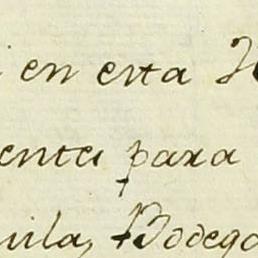 i en esta
entes para
uila, Bodega